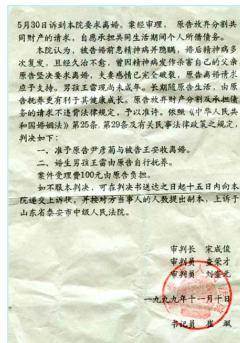 5月30日诉到本院要求离婚。案经审理，原告放弃分割共
同财产的请求，自愿承担共同生活期间个人所借债务。
本院认为，被告婚前患精神病并隐瞒，婚后精神病多
次复发，且经久治不愈，曾因精神病发作杀害自己的父亲
原告坚决要求离婚，夫妻感情已完全破裂，原告离婚请求
应予支持。男孩王雷现尚未成年。长期随原告生活，由原
告抚养更有利于其健康成长。原告放弃财产分割及承担债
务的请求不违背法律规定，予以准许。依照《中华人民共
和国婚姻法》第25条、第29条及有关民事法律政策之规定，
判决如下：
一、准予原告尹彦菊与被告王安收离婚。
二、婚生男孩王雷由原告自行抚养。
案件受理费100元由原告负担。
如不服本判决，可在判决书送达之日起十五日内向本
院递交上诉状，并按对方当事人的人数提出副本，上诉于
山东省泰安市中级人民法院。
审判长 宋成俊
审判员 栾荣才
审判员
一九九九年十一月十日
书记员